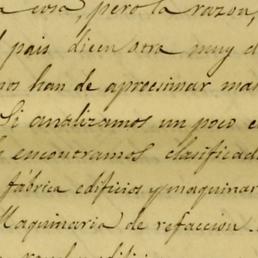 cosa, pero la razon,
pais dicen otra muy d
nos han de aprocsimar mas
Si analizamos un poco e
encontramos clasificad
fábrica edificios y maquinar
Maquinaria de refaccion